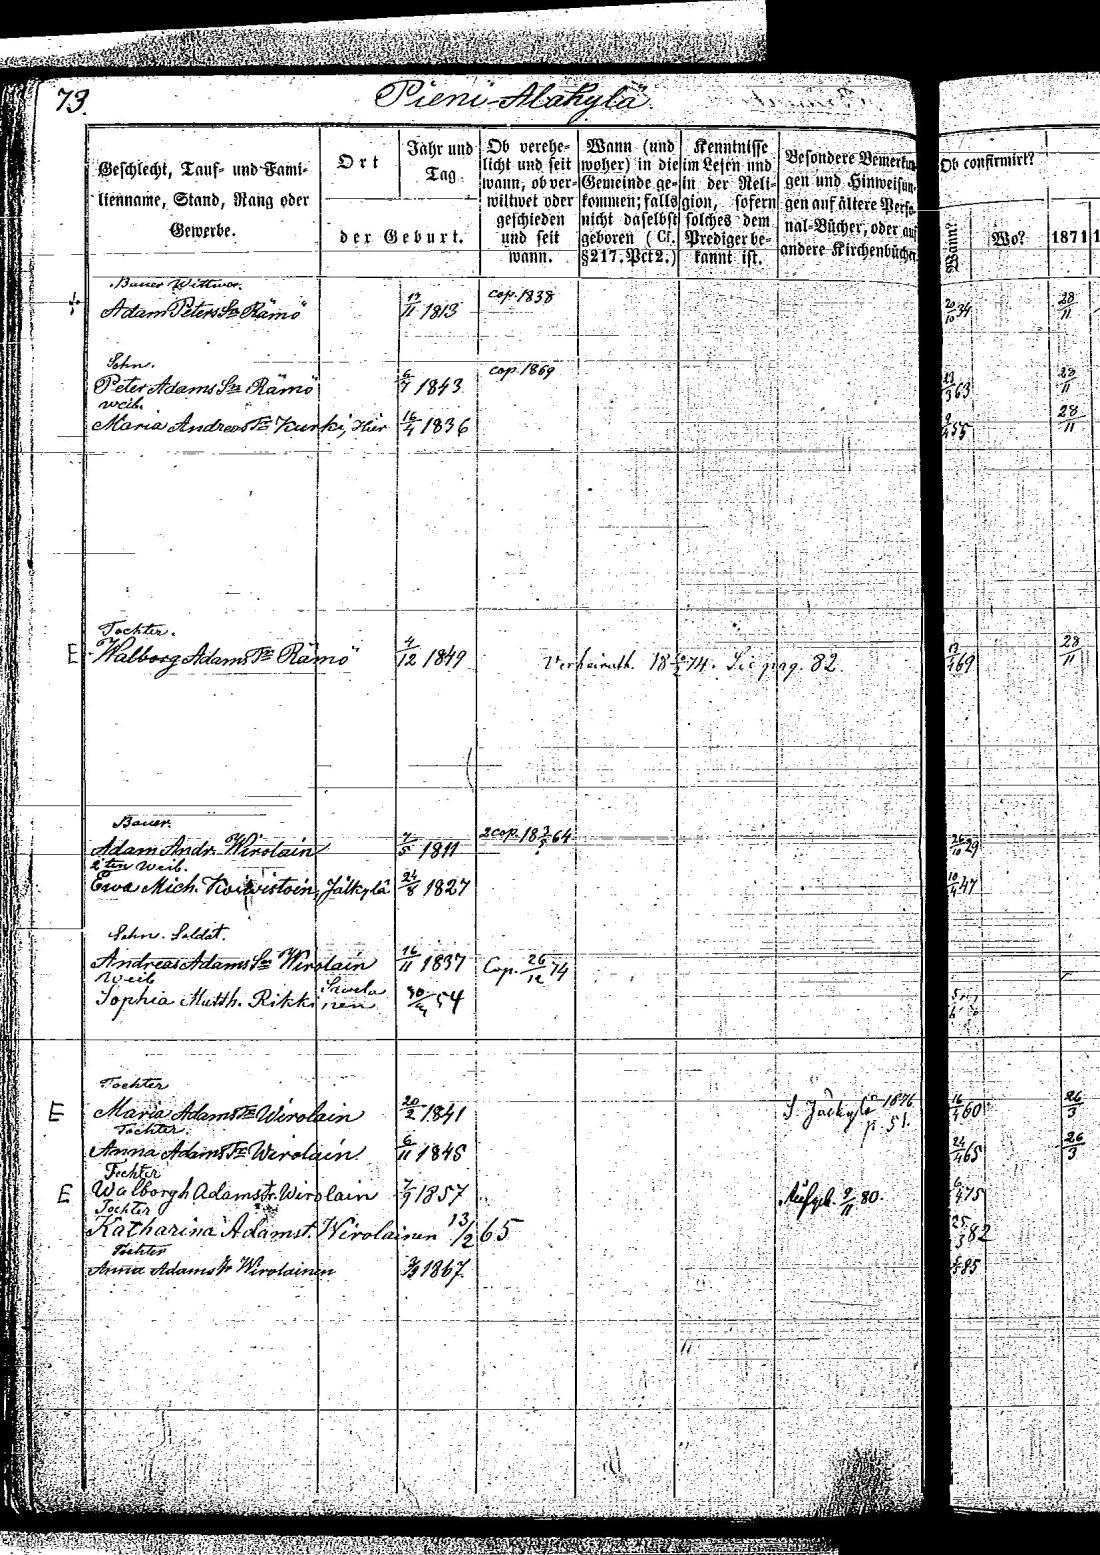 73.
Pieni-Alakylä
Geschlecht, Tauf- und Fami-
lienname, Stand, Rang oder
Gewerbe.
Ort
Jahr und
Tag
der Geburt.
Ob verehe-
licht und seit
wann, ob ver-
wittwet oder
geschieden
und seit
wann.
Wann (und
woher) in die
Gemeinde ge-
kommen; falls
nicht daselbst
geboren (Cf.
§ 217. Pct 2.)
Kenntnisse
im Lesen und
in der Reli-
gion, sofern
solches dem
Prediger be-
kannt ist.
Besondere Bemerkun-
gen und Hinweisun-
gen auf ältere Perso-
nal-Bücher, oder auf
andere Kirchenbücher
Ob confirmirt?
Wann?
Wo?
1871
Bauer Wittwer.
Adam Peters Sn Rämö 13/11 1813 cop. 1838 20/10 34 28/11
Sohn.
Peter Adams Sn Rämö 6/7 1843 cop. 1869 23/3 63 28/11
Weib.
Maria Andreas Tr Kurki, Hier 16/4 1836 9/4 55 28/11
Tochter.
E Walborg Adams Tr Rämö 4/12 1849 Verheirath. 74. Sie pag. 82. 13/4 69 28/11
Bauer.
Adam Andr. Wirolain 7/5 1811 2 cop. 64 26/10 29
2ten Weib.
Ewa Mich. Koiwistoin, Jälkylä 24/8 1827 10/4 47
Sohn. Soldat.
Andreas Adams Sn Wirolain 16/11 1837 Cop. 26/12 74
Weib
Sophia Matth. Rikkinen 54
Tochter
E Maria Adams Tr Wirolain 20/2 1841 S. Jälkylä 1876 p. 51. 16/4 60 26/3
Tochter.
Anna Adams Tr Wirolain 6/11 1845 24/4 65 26/3
Tochter
E Walborgh Adams tr. Wirolain 7/9 1857 Aufgeb. 9/11 80. 6/4 75
Tochter
Katharina Adamst. Wirolainen 13/2 65 25/3 82
Tochter
Anna Adams tr Wirolainen 1867 85